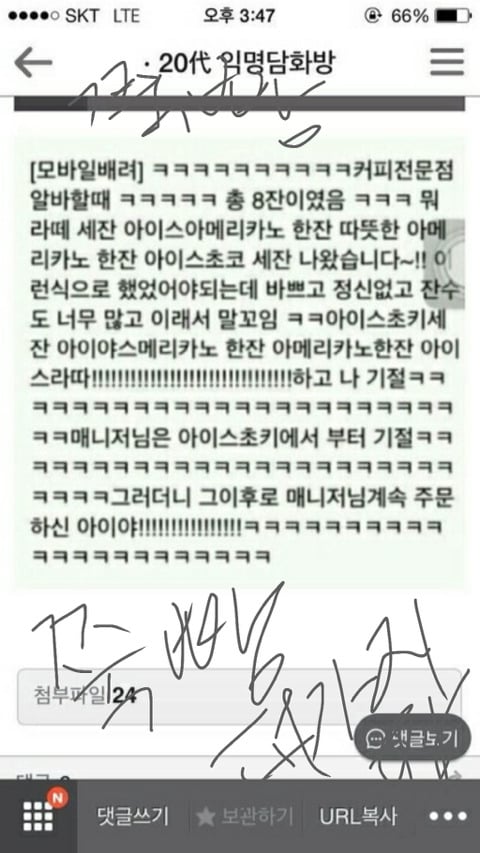 SKT LTE 오후 3:47 66%
· 20代 익명담화방
[모바일배려] ㅋㅋㅋㅋㅋㅋㅋㅋㅋㅋ커피전문점
알바할때 ㅋㅋㅋㅋㅋ 총 8잔이였음 ㅋㅋㅋ 뭐
라떼 세잔 아이스아메리카노 한잔 따뜻한 아메
리카노 한잔 아이스초코 세잔 나왔습니다~!! 이
런식으로 했었어야되는데 바쁘고 정신없고 잔수
도 너무 많고 이래서 말꼬임 ㅋㅋ아이스초키세
잔 아이야스메리카노 한잔 아메리카노한잔 아이
스라따!!!!!!!!!!!!!!!!!!!!!!!!!!!!!!!!하고 나 기절ㅋㅋ
ㅋㅋㅋㅋㅋㅋㅋㅋㅋㅋㅋㅋㅋㅋㅋㅋㅋㅋㅋㅋㅋ
ㅋㅋ매니저님은 아이스초키에서 부터 기절ㅋㅋ
ㅋㅋㅋㅋㅋㅋㅋㅋㅋㅋㅋㅋㅋㅋㅋㅋㅋㅋㅋㅋㅋ
ㅋㅋㅋㅋ그러더니 그이후로 매니저님계속 주문
하신 아이야!!!!!!!!!!!!!!!!!ㅋㅋㅋㅋㅋㅋㅋㅋㅋㅋ
ㅋㅋㅋㅋㅋㅋㅋㅋㅋㅋㅋㅋ
첨부파일 24
댓글보기
N
댓글쓰기 ★ 보관하기 URL복사